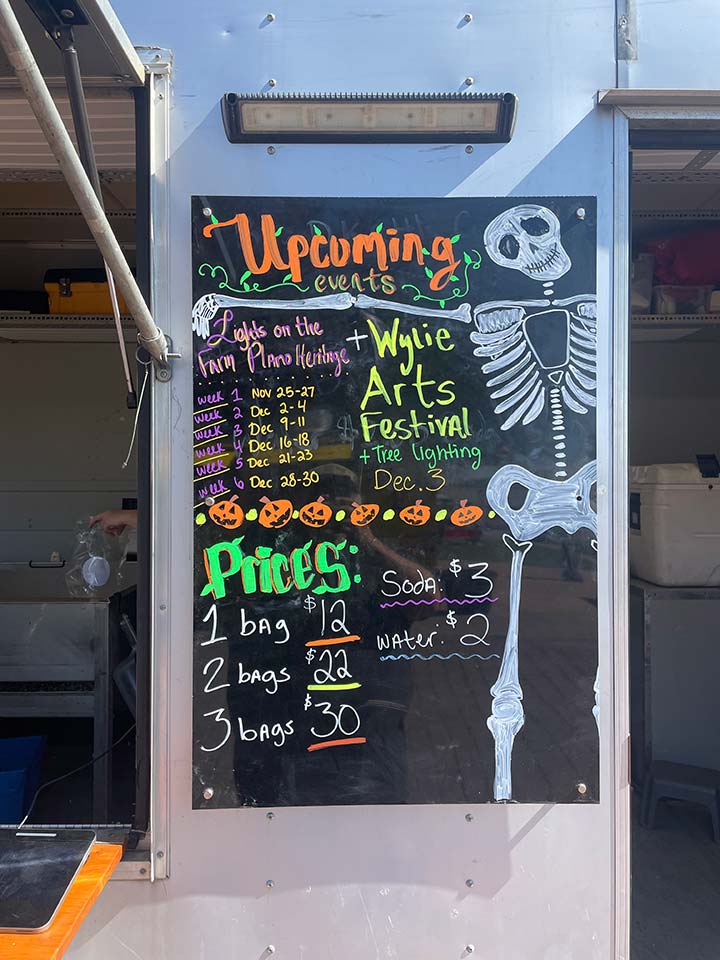 Upcoming
events
Lights on the
Farm Plano Heritage
week 1 Nov 25-27
week 2 Dec 2-4
week 3 Dec 9-11
week 4 Dec 16-18
week 5 Dec 21-23
week 6 Dec 28-30
+ Wylie
Arts
Festival
+ Tree lighting
Dec. 3
Prices:
1 bag $12
2 bags $22
3 bags $30
Soda: $3
water: $2